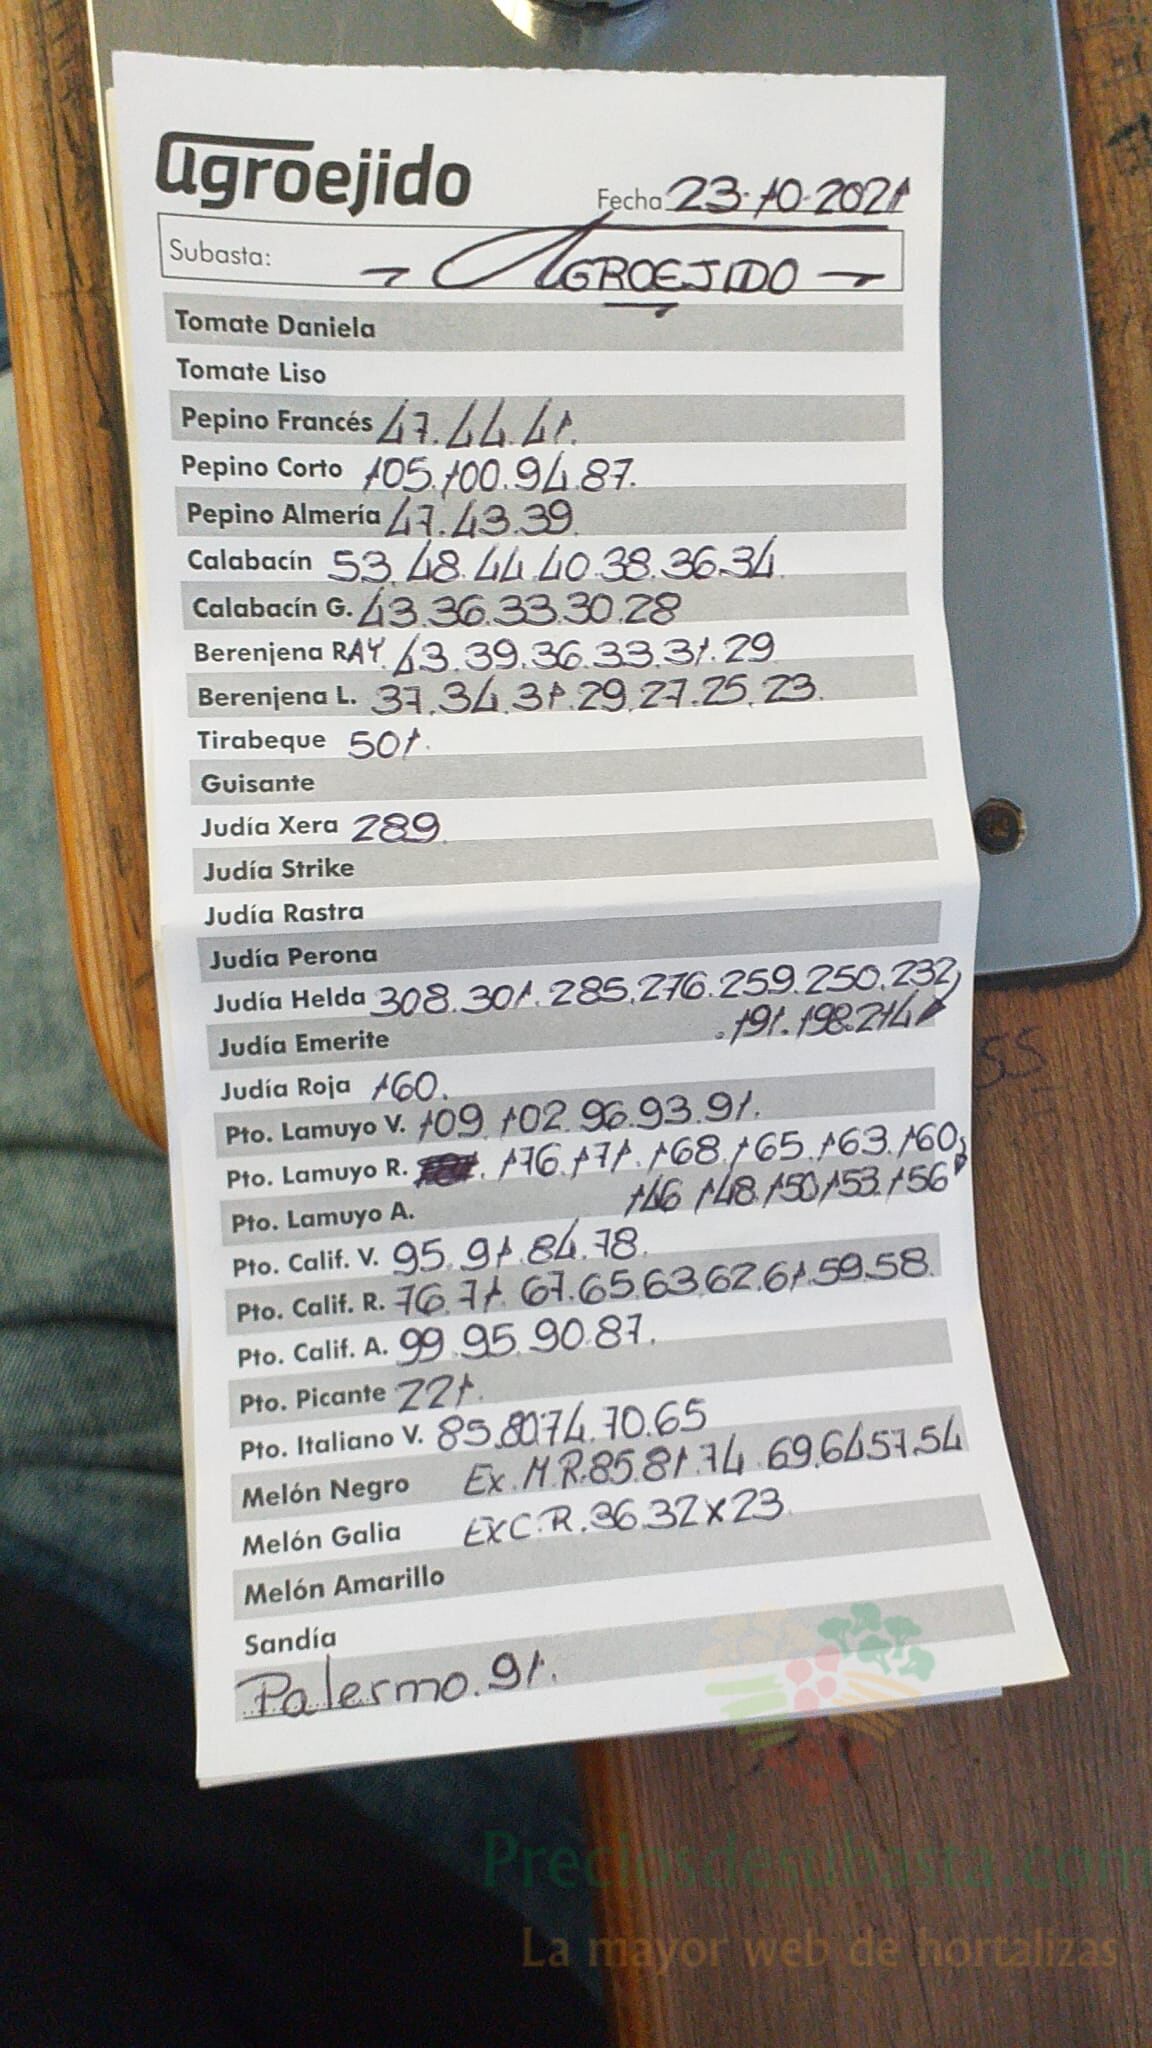 agroejido
Fecha 23-10-2021
Subasta: AGROEJIDO
Tomate Daniela
Tomate Liso
Pepino Francés 47.44.41.
Pepino Corto 105.100.94.87.
Pepino Almería 47.43.39
Calabacín 53.48.44.40.38.36.34
Calabacín G. 43.36.33.30.28
Berenjena RAY. 43.39.36.33.31.29
Berenjena L. 37.34.31.29.27.25.23.
Tirabeque 501.
Guisante
Judía Xera 289
Judía Strike
Judía Rastra
Judía Perona
Judía Helda 308.301.285.276.259.250.232
.191.198.214
Judía Emerite
Judía Roja 160.
Pto. Lamuyo V. 109.102.96.93.91.
Pto. Lamuyo R. .176.171.168.165.163.160
146 148.150.153.156
Pto. Lamuyo A.
Pto. Calif. V. 95.91.84.78.
Pto. Calif. R. 76.71.67.65.63.62.61.59.58.
Pto. Calif. A. 99.95.90.87.
Pto. Picante 221.
Pto. Italiano V. 85.80.74.70.65
Melón Negro Ex.M.R.85.81.74.69.64.57.54
Melón Galia EXC.R.36.32x23.
Melón Amarillo
Sandía
Palermo.91.
55
Preciosdesubasta.com
La mayor web de hortalizas